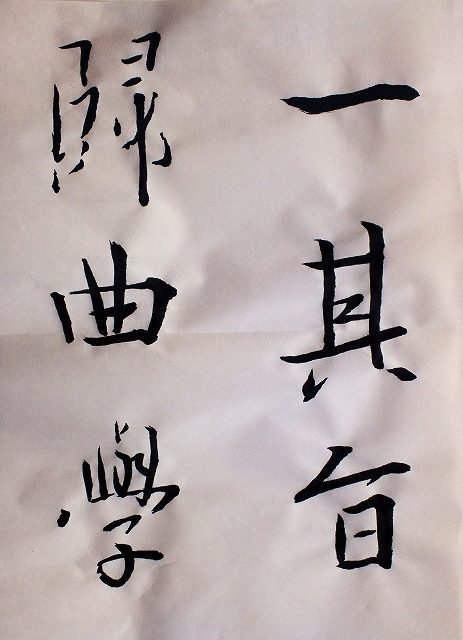 一其旨
歸曲學